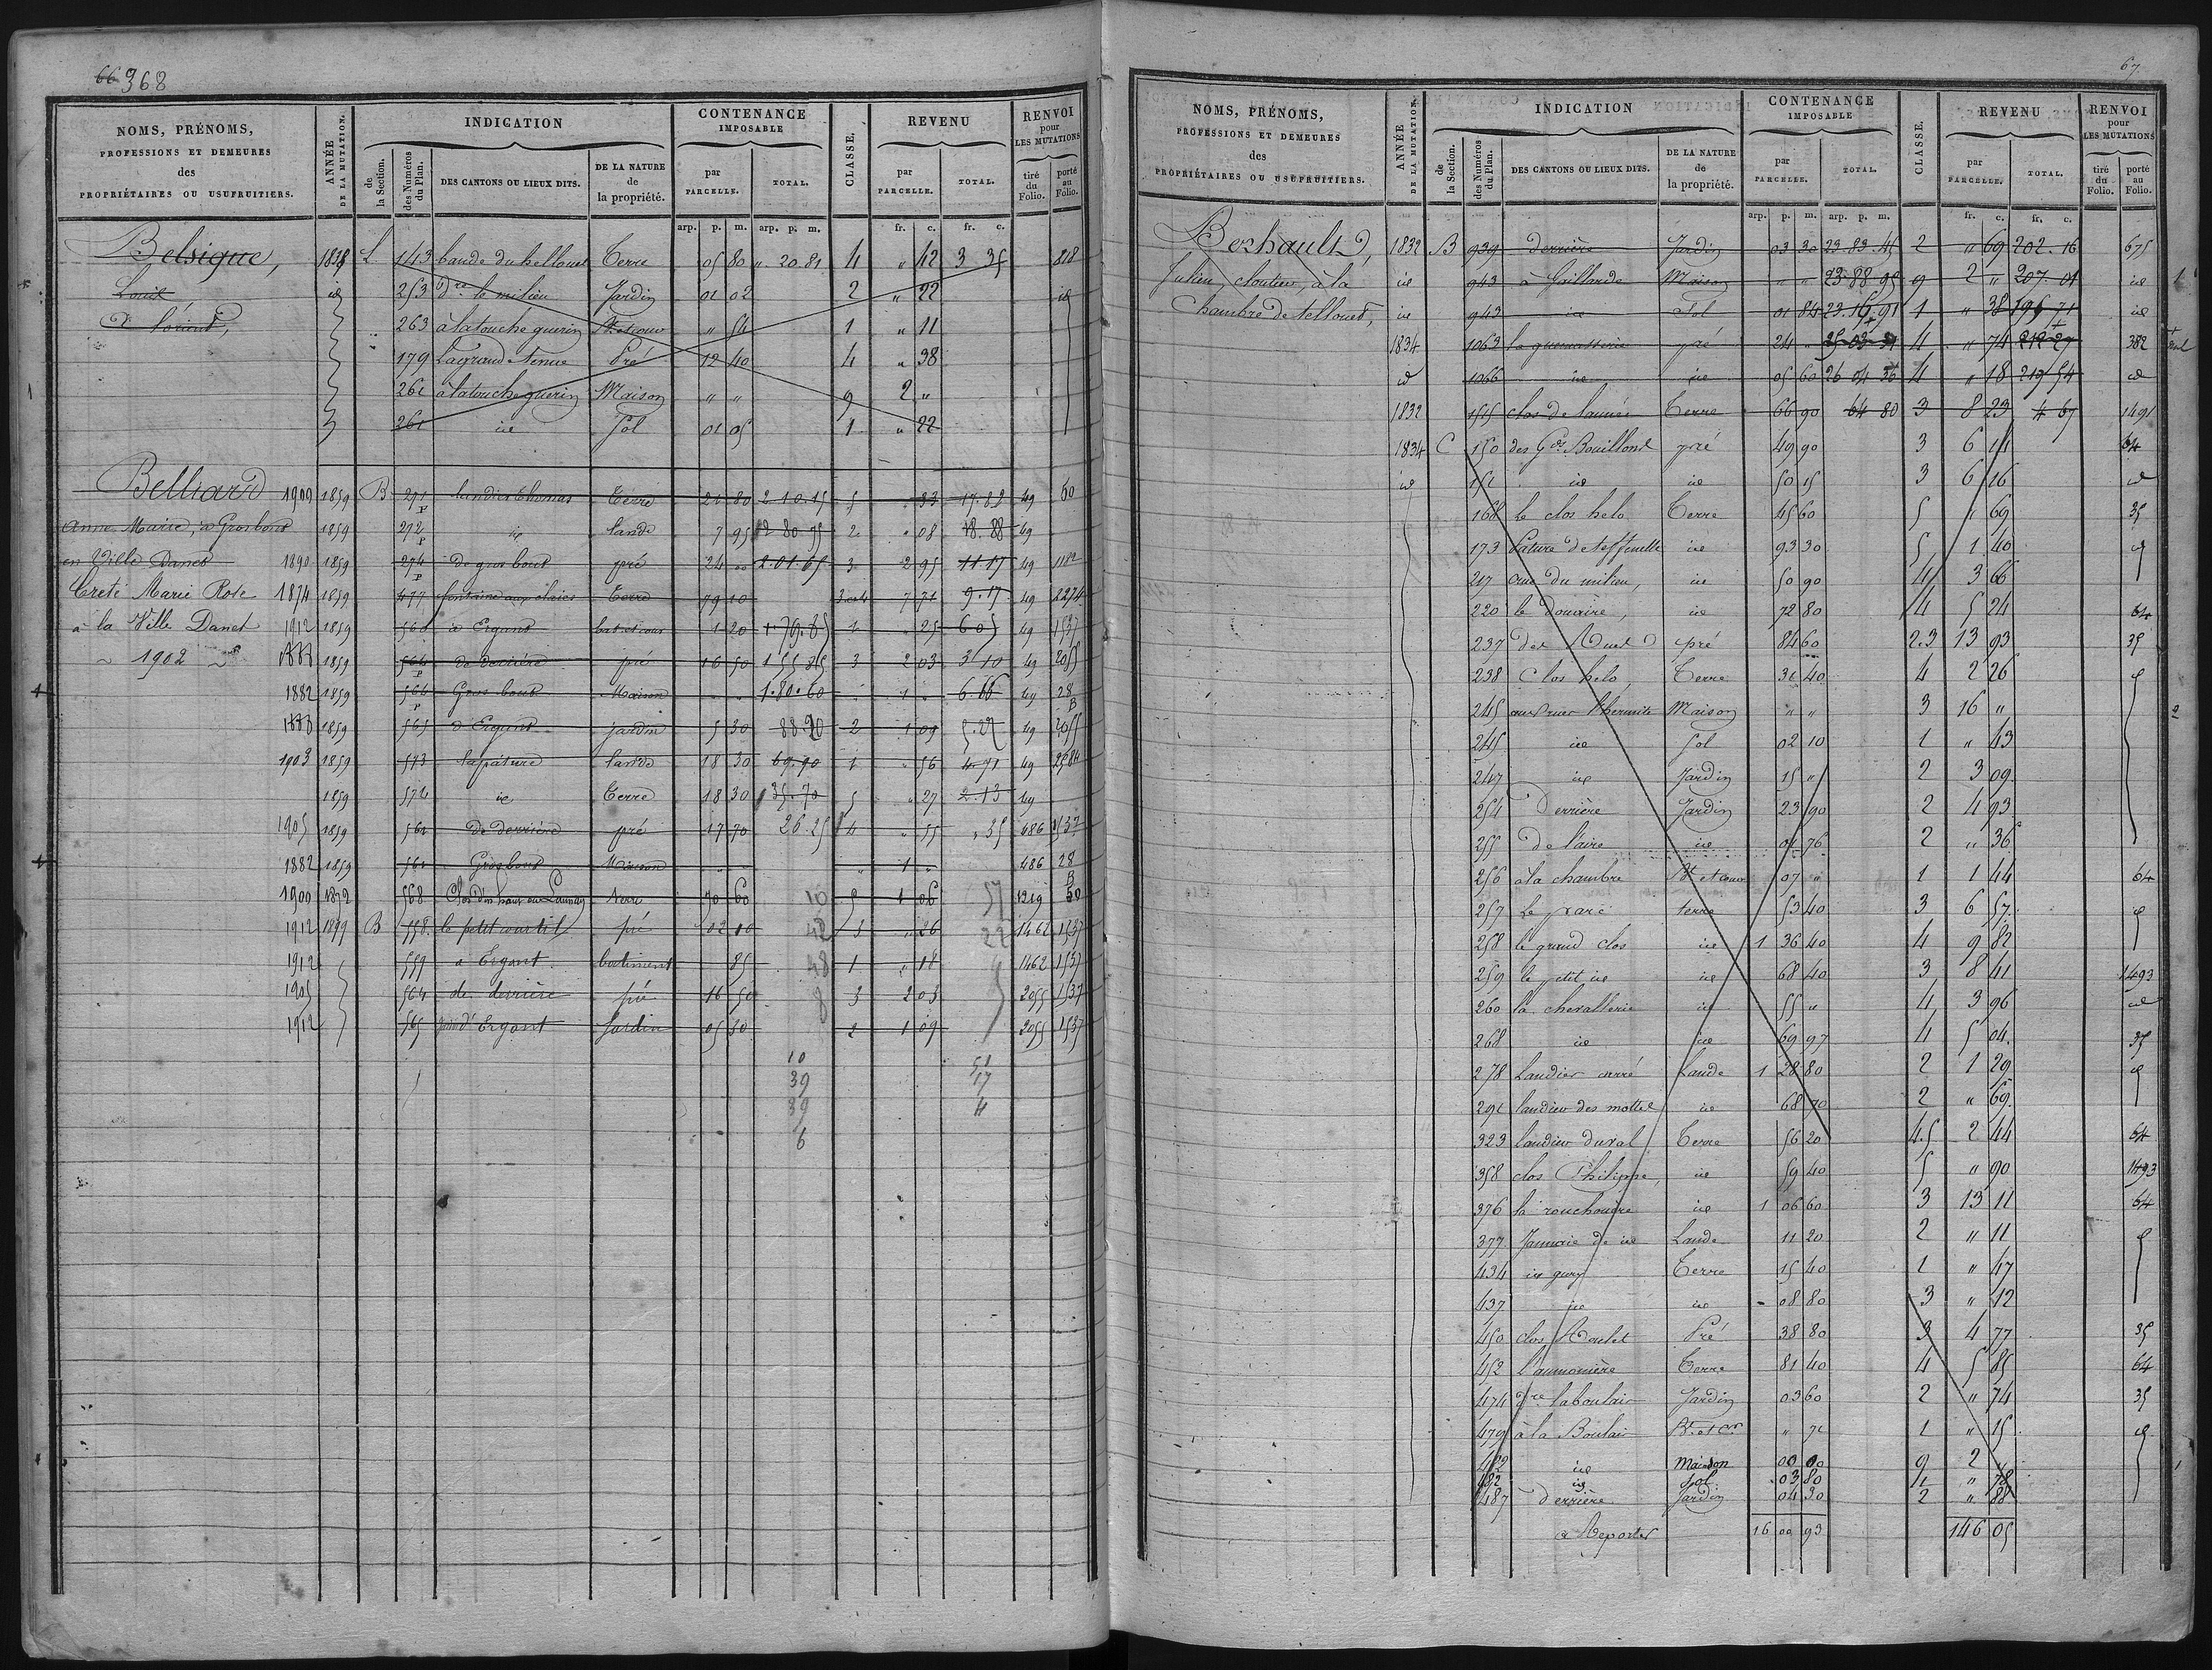 66 368
NOMS, PRÉNOMS,
PROFESSIONS ET DEMEURES
des
PROPRIÉTAIRES OU USUFRUITIERS.
ANNÉE
DE LA MUTATION.
INDICATION
de
la Section.
des Numéros
du Plan.
DES CANTONS OU LIEUX DITS.
DE LA NATURE
de
la propriété.
CONTENANCE
IMPOSABLE
par
PARCELLE.
TOTAL.
CLASSE.
REVENU
par
PARCELLE.
TOTAL.
RENVOI
pour
LES MUTATIONS
tiré
du
Folio.
porté
au
Folio.
arp. p. m. arp. p. m. fr. c. fr. c.
Belsigue, L 143 Terre 05 80 " 20.81 4 " 42 3 35 818
Louis id 253 Dre le milieu Jardin 01 02 2 " 22 id
D' lorient, 263 à latouche guerin " 54 1 " 11
179 Pré 12 40 4 " 38
261 à latouche guerin Maison " " 9 2 "
261 id Sol 01 05 1 " 22
Belliard 1909 1859 B 271 p landier Thomas Terre 21 80 2.10.15 5 " 33 17.82 49 60
Anne Marie, à Grosbout 1859 272 p id lande 7 95 2 80 95 2 " 08 18.88 49
en Ville Danet 1890 1859 274 p de gros bout pré 24 " 2.01.65 3 2 95 11 17 49 1182
Creté Marie Rose 1874 1859 477 Terre 79 10 3 et 4 7 71 9.17 49 2274
à la Ville Danet 1912 1859 560 à Ergant bat et cour 1 20 1.79.85 1 " 25 6 05 49 1537
1902 1888 1859 564 p de derrière pré 16 50 1 55 35 3 2 03 3 10 49 2055
1882 1859 564 p Gros bout Maison " " 1.80.60 1 " 6.66 49 28 B
1888 1859 565 d'Ergant jardin 5 30 88 20 2 1 09 5.22 49 2055
1903 1859 573 la pâture lande 18 30 69.90 1 " 56 4.71 49 2584
1859 572 id Terre 18 30 35.70 5 " 27 2.13 49
1905 1859 561 de derrière pré 17 70 26.25 4 " 55 " 35 486 1537
1882 1859 561 Grosbout Maison " " 1 " 486 28 B
1909 1872 568 terre 70 60 10 5 1 06 57 1319 50
1912 1899 B 558 le petit courtil pré 02 10 42 3 " 26 22 1462 1537
1912 559 à Ergant batiment 85 48 1 " 18 1462 1537
1905 564 de derrière pré 16 50 8 3 2 03 2055 1537
1912 565 d'Ergant Jardin 05 30 2 1 09 2055 1537
10 51
39 17
39 4
6
67
NOMS, PRÉNOMS,
PROFESSIONS ET DEMEURES
des
PROPRIÉTAIRES OU USUFRUITIERS.
ANNÉE
DE LA MUTATION.
INDICATION
de
la Section.
des Numéros
du Plan.
DES CANTONS OU LIEUX DITS.
DE LA NATURE
de
la propriété.
CONTENANCE
IMPOSABLE
par
PARCELLE.
TOTAL.
CLASSE.
REVENU
par
PARCELLE.
TOTAL.
RENVOI
pour
LES MUTATIONS
tiré
du
Folio.
porté
au
Folio.
arp. p. m. arp. p. m. fr. c. fr. c.
Bershault, 1832 B 939 derrière Jardin 03 30 23.83.45 2 " 69 202.16 675
Julien, cloutier, à la id 943 à Gaillarde Maison " " 23 88 95 9 2 " 207.01 id
Chambre de Tellouet, id 943 id Sol 01 84 23.16.91 1 " 38 196 71 id
1834 1063 la guemasserie pré 24 " 25 03 4 " 74 212 27 382
id 1066 id id 05 60 26 04 36 4 " 18 219 54 id
1832 1515 clos de launée Terre 66 90 64 80 3 8 23 4 67 1491
1834 C 150 des Gds Bouillons pré 49 90 3 6 14 64
id 151 id id 50 15 3 6 16 id
168 le clos helo Terre 45 60 5 " 69 35
173 Pature id 93 30 5 1 40 id
217 du milieu, id 50 90 4 3 66
220 le Douaire, id 72 80 4 5 24 64
237 pré 84 60 2.3 13 93 35
238 Clos helo, Terre 31 40 4 2 26
245 Maison " " 3 16 "
245 id Sol 02 10 1 " 43
247 id Jardin 15 " 2 3 09
254 Derrière Jardin 23 90 2 4 93
255 De l'aire id 04 76 2 " 36
256 à la chambre Bt et cour 07 " 1 1 44 64
257 Le parc terre 53 40 3 6 57
258 le grand clos id 1 36 40 4 9 82
259 le petit id id 68 40 3 8 41 1493
260 la chevallerie id 55 " 4 3 96 id
268 id id 69 97 4 5 04 35
278 Landier carré Lande 1 28 80 2 1 29 id
291 landier des mottes id 68 70 2 " 69
323 landier duval Terre 56 20 4.5 2 44 64
358 clos Philippe, id 59 40 5 " 90 1493
376 la rouchouère id 1 06 60 3 13 11 64
377 Jannaie de id Lande 11 20 2 " 11
434 Terre 15 40 1 " 47
437 id id 08 80 3 " 12
450 clos Pré 38 80 3 4 77 35
452 L'aumonière Terre 81 40 4 5 85 64
474 Dre laboulaie Jardin 03 60 2 " 74 35
479 à la Boulaie Bt et Cr " 71 1 " 15
482 id Maison 00 00 9 2 "
482 id Sol 03 80 1 " 78
487 derrière Jardin 04 30 2 " 88
à Reporter 16 00 93 146 05